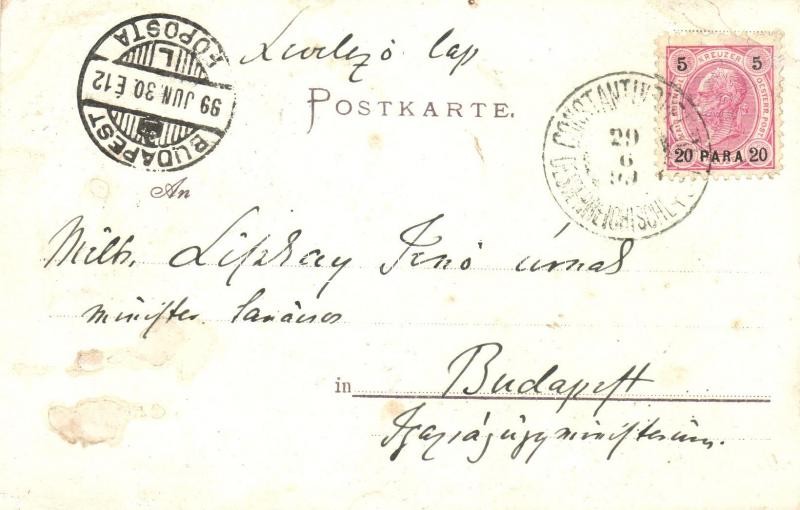 Levelező lap
POSTKARTE.
BUDAPEST
99 JUN.30.É12
FŐPOSTA
5 KREUZER 5
OESTERR. POST
20 PARA 20
CONSTANTINOPEL
29
6
99
OESTERREICHISCHE
An
Jenő úrnak
miniszter tanácsos
in Budapest
Igazságügyminiszterium.